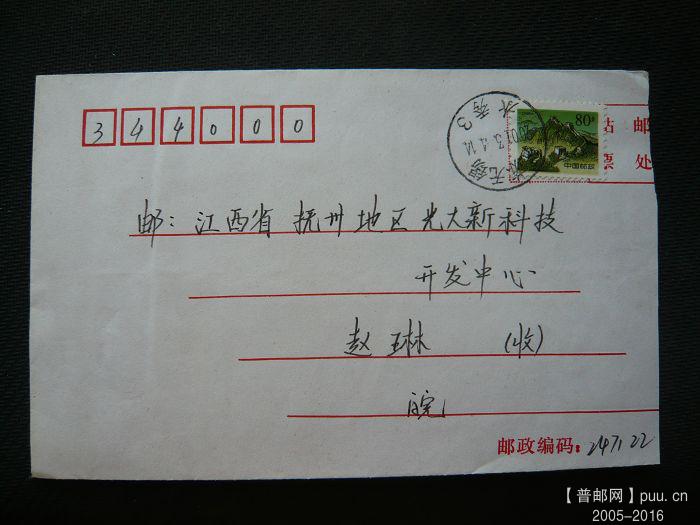 344000
80分
中国邮政
贴 邮
票 处
邮：江西省 抚州地区光大新科技
开发中心
赵琳 （收）
皖
邮政编码：247122
【普邮网】puu.cn
2005-2016